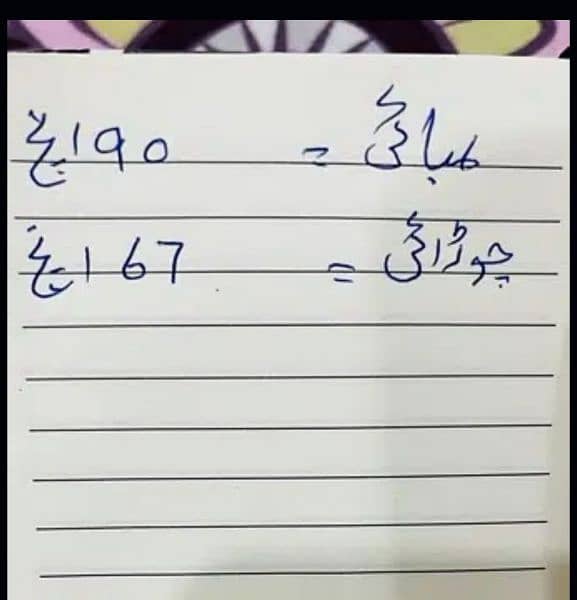 لمبائی = 90 انچ
چوڑائی = 67 انچ